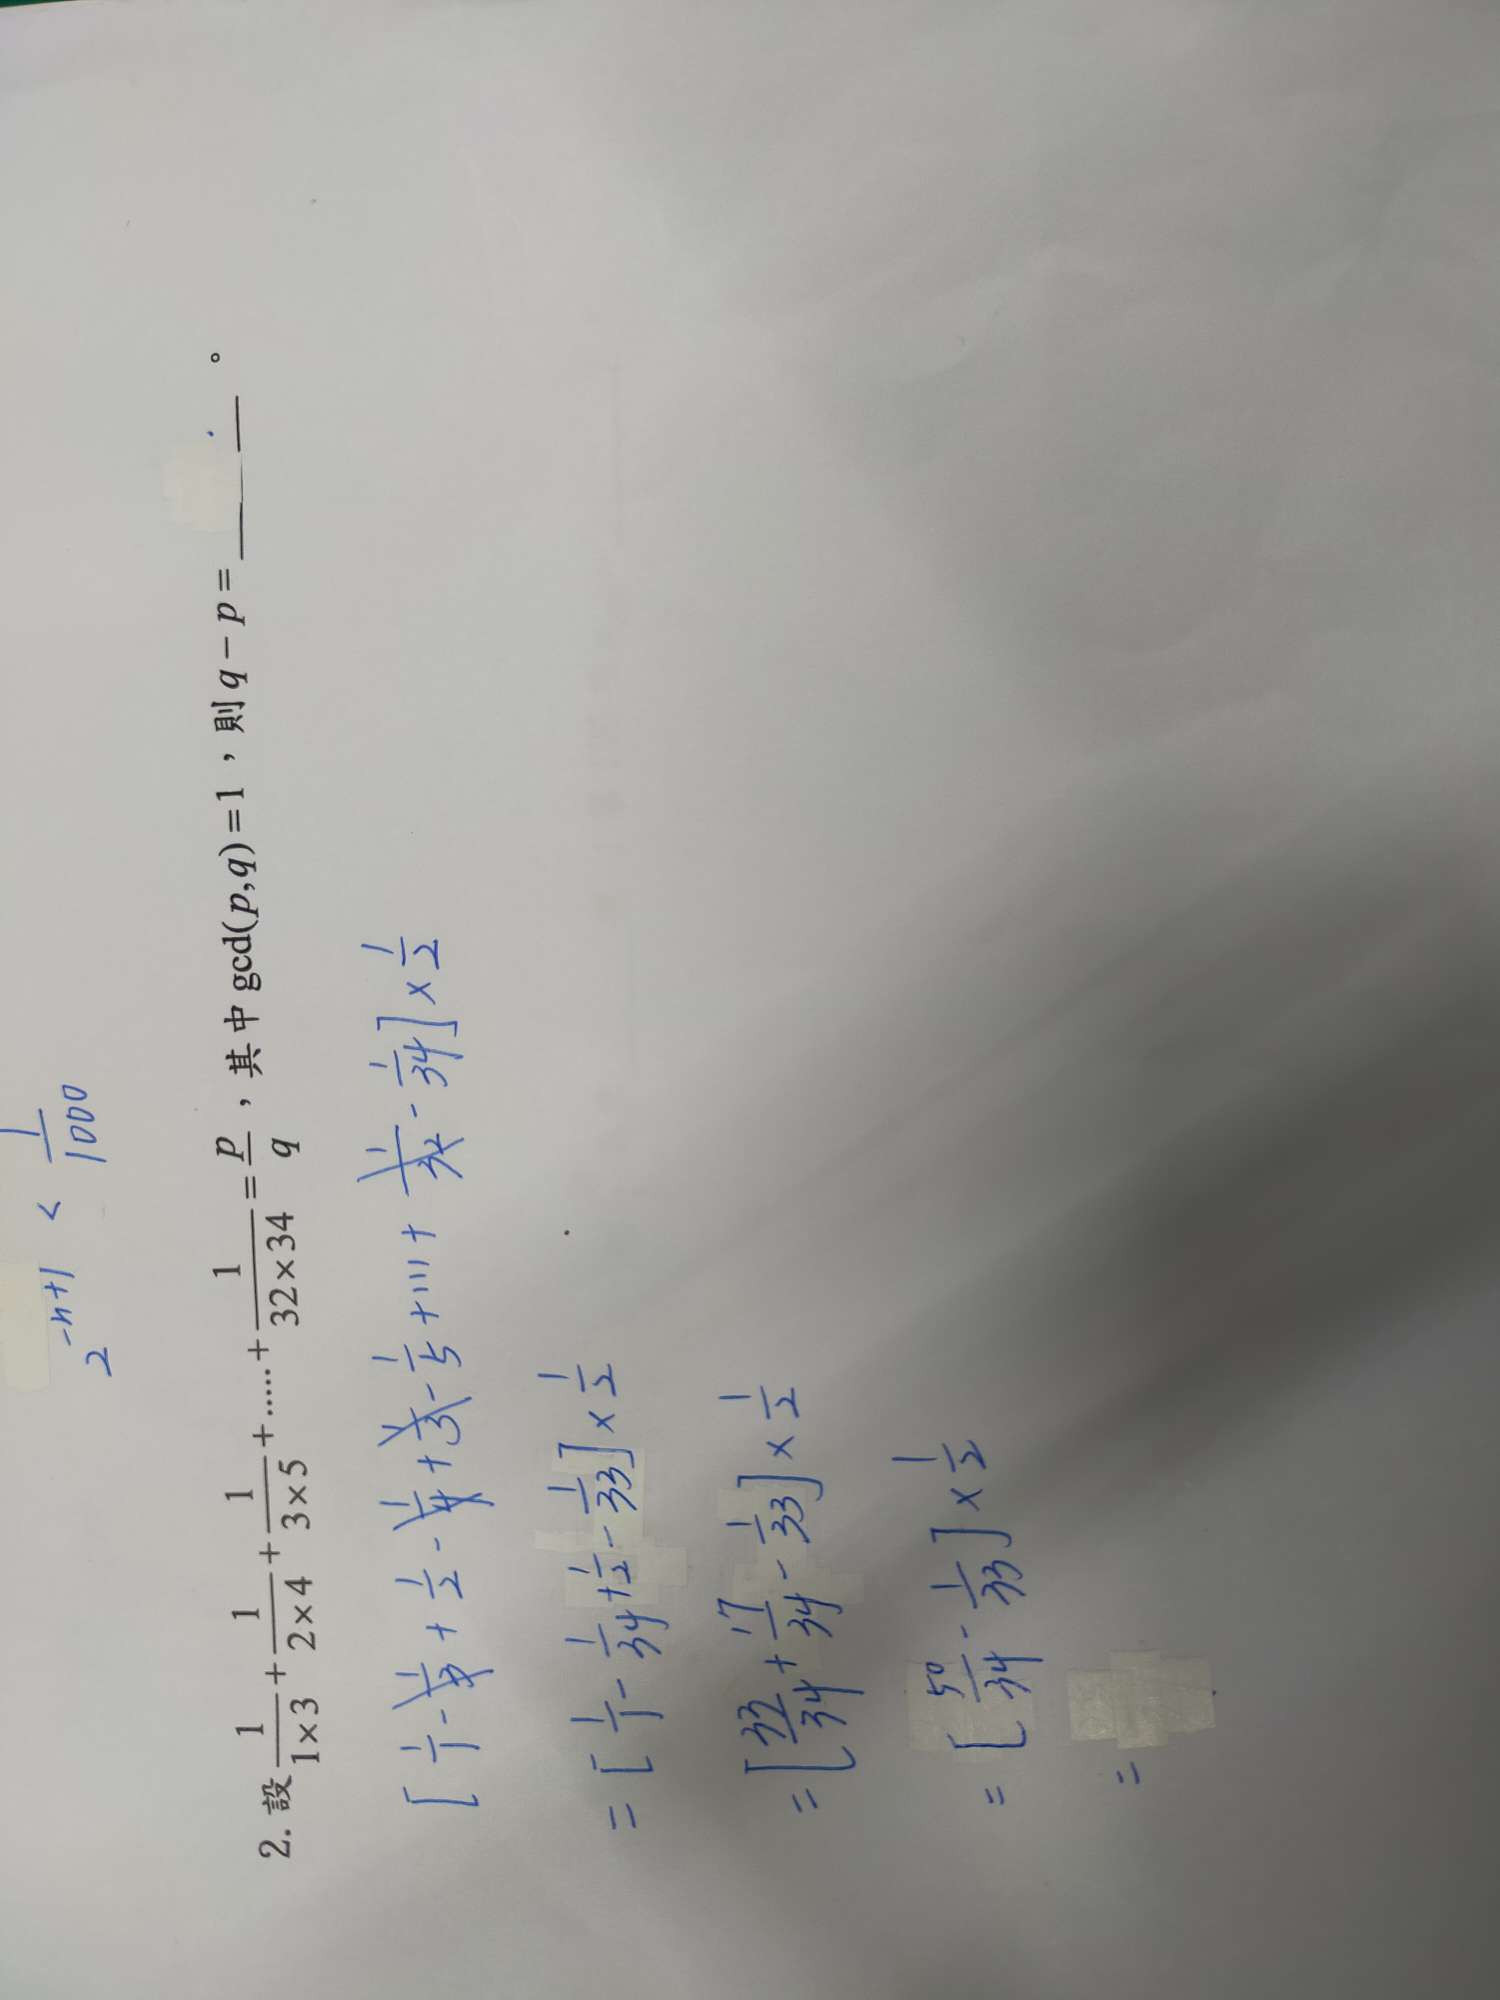 2^{-n+1} < \frac{1}{1000}
2. 設 \frac{1}{1×3} + \frac{1}{2×4} + \frac{1}{3×5} + ...... + \frac{1}{32×34} = \frac{p}{q} ，其中 gcd(p,q)=1 ，則 q − p = ______ 。
[\frac{1}{1} - \frac{1}{3} + \frac{1}{2} - \frac{1}{4} + \frac{1}{3} - \frac{1}{5} + ... + \frac{1}{32} - \frac{1}{34}] × \frac{1}{2}
= [\frac{1}{1} - \frac{1}{34} + \frac{1}{2} - \frac{1}{33}] × \frac{1}{2}
= [\frac{33}{34} + \frac{17}{34} - \frac{1}{33}] × \frac{1}{2}
= [\frac{50}{34} - \frac{1}{33}] × \frac{1}{2}
=